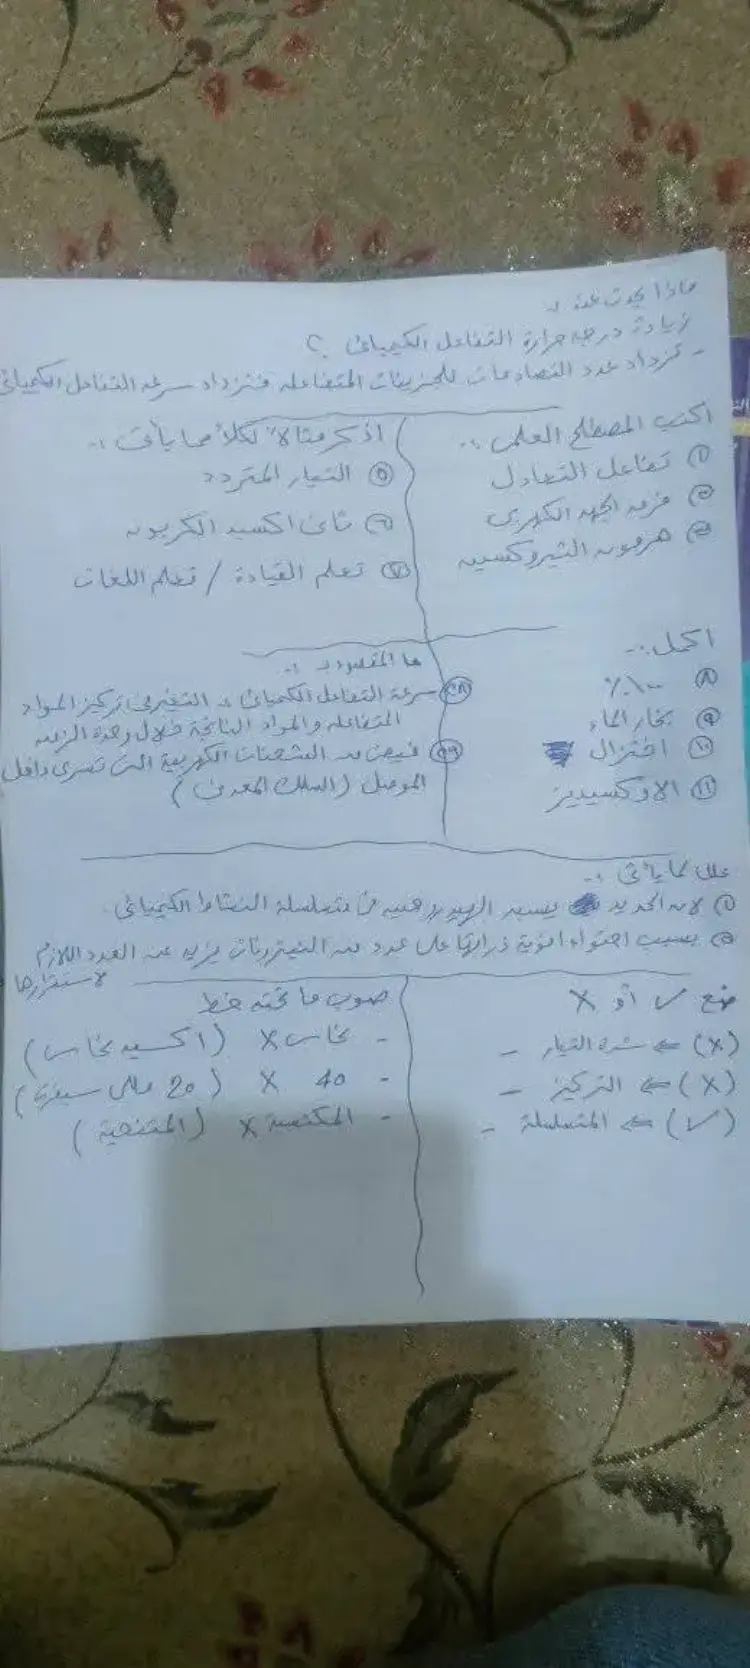 ماذا يحدث عند :-
زيادة درجة حرارة التفاعل الكيميائى ؟
- تزداد عدد التصادمات للجزيئات المتفاعله فتزداد سرعه التفاعل الكيميائى
اكتب المصطلح العلمى :-
① تفاعل التعادل
② فرق الجهد الكهربى
③ هرمون الثيروكسين
اذكر مثالاً لكلاً مما يأتى :-
⑤ التيار المتردد
⑥ ثانى اكسيد الكربون
⑦ تعلم القيادة / تعلم اللغات
اكمل :-
٨ ١٠٠٪
⑨ بخار الماء
⑩ اختزال
⑪ الاوكسيديز
ما المقصود :-
سرعة التفاعل الكيميائى :- التغير فى تركيز المواد
المتفاعله والمواد الناتجة خلال وحدة الزمن
فيض من الشحنات الكهربية التى تسرى داخل
الموصل (السلك المعدنى)
علل لما يأتى :-
① لان الحديد يسبق الهيدروجين فى متسلسلة النشاط الكيميائى
② بسبب احتواء انوية ذراتها على عدد من النيترونات يزيد عن العدد اللازم
لاستقرارها
ضع ✓ أو X
(X) ⇐ شدة التيار -
(X) ⇐ التركيز -
(✓) ⇐ المتسلسلة -
صوب ما تحته خط
- نحاس X (اكسيد نحاس)
- 40 X (20 مللى سيفرت)
- المكتسبة X (المتنحية)